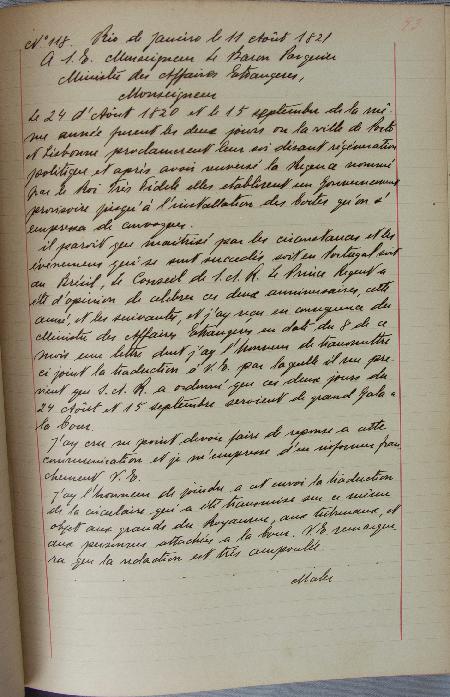 93
N° 118. Rio de Janeiro le 11 Août 1821
A S.E. Monseigneur Le Baron Pasquier
Ministre des Affaires Etrangeres,
Monseigneur
Le 24 d'Aout 1820 et le 15 septembre de la mê-
me année furent les deux jours ou la ville de Porto
et Lisbonne proclamerent leur soi disant régéneration
politique et après avoir renversé la Regence nommé
par le Roi Très Fidele elles etablirent un Gouvernement
provisoire jusqu'à l'installation des Cortès qu'on s'
empressa de convoquer.
il paroit que maitrisé par les circonstances et les
évenemens qui se sont succedés soit en Portugal soit
au Brésil, le Conseil de S.A.R. Le Prince Regent a
été d'opinion de celebrer ces deux anniversaires, cette
année, et les suivants, et j'ay reçu en consequence du
Ministre des Affaires Etrangeres en date du 8 de ce
mois une lettre dont j'ay l'honneur de transmettre
ci joint la traduction à V.E. par laquelle il me pre-
vient que S.A.R. a ordonné que ces deux jours du
24 Août et 15 septembre seroient de grand Gala a
la Cour.
J'ay cru ne point devoir faire de reponse a cette
communication et je m'empresse d'en informer fran
chement V.E.
J'ay l'honneur de joindre a cet envoi la traduction
de la circulaire qui a été transmise sur ce même
objet aux grands du Royaume, aux tribunaux, et
aux personnes attachées a la Cour. V.E. remarque
ra que la redaction est très ampoulée.
Maler